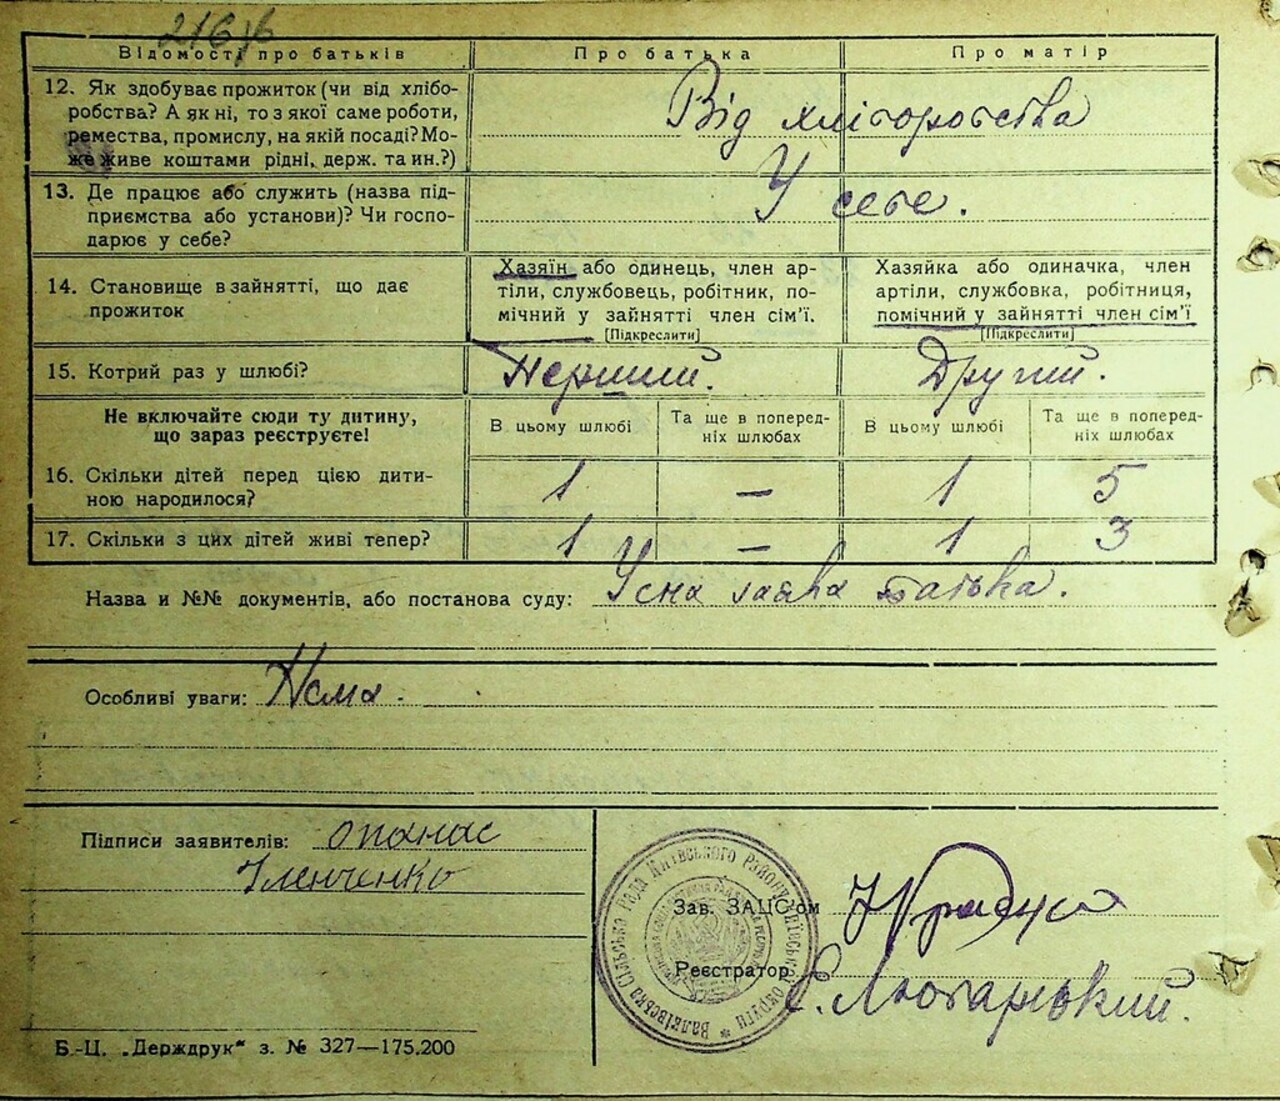 216/6
Відомості про батьків Про батька Про матір
12. Як здобуває прожиток (чи від хлібо-
робства? А як ні, то з якої саме роботи,
ремества, промислу, на якій посаді? Мо-
же живе коштами рідні, держ. та ин.?)
Від хліборобства
13. Де працює або служить (назва під-
приємства або установи)? Чи госпо-
дарює у себе?
У себе.
14. Становище в зайнятті, що дає
прожиток
Хазяїн або одинець, член ар-
тіли, службовець, робітник, по-
мічний у зайнятті член сім'ї.
[Підкреслити]
Хазяйка або одиначка, член
артіли, службовка, робітниця,
помічний у зайнятті член сім'ї
[Підкреслити]
15. Котрий раз у шлюбі? Перший. Другий.
Не включайте сюди ту дитину,
що зараз реєструєте!
В цьому шлюбі
Та ще в поперед-
ніх шлюбах
В цьому шлюбі
Та ще в поперед-
ніх шлюбах
16. Скільки дітей перед цією дити-
ною народилося?
1 — 1 5
17. Скільки з цих дітей живі тепер? 1 — 1 3
Назва и №№ документів, або постанова суду: Усна заява батька.
Особливі уваги: Нема.
Підписи заявителів: Опанас
Ільенченко
Зав. ЗАЦС'ом
Реєстратор Є. Лютарський.
Валківська Сільська Рада Київського Району Київської Округи
Б.-Ц. „Держдрук“ з. № 327—175.200